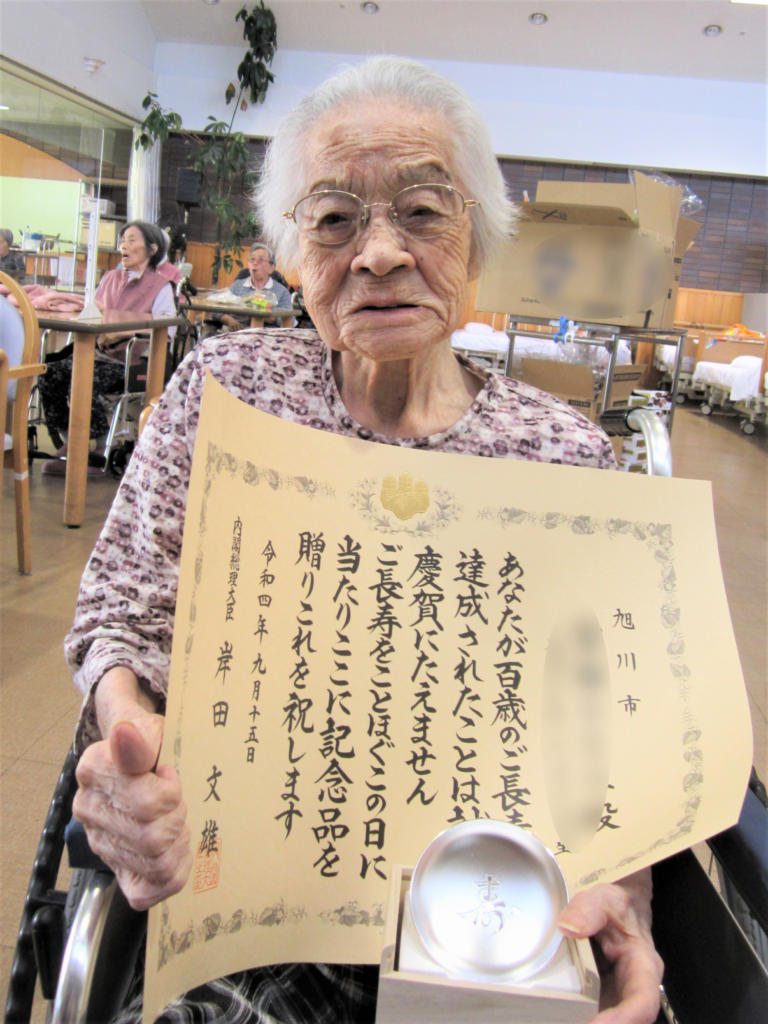 旭川市
殿
あなたが百歳のご長寿
達成されたことは
慶賀にたえません
ご長寿をことほぐこの日に
当たりここに記念品を
贈りこれを祝します
令和四年九月十五日
内閣総理大臣 岸田文雄
寿